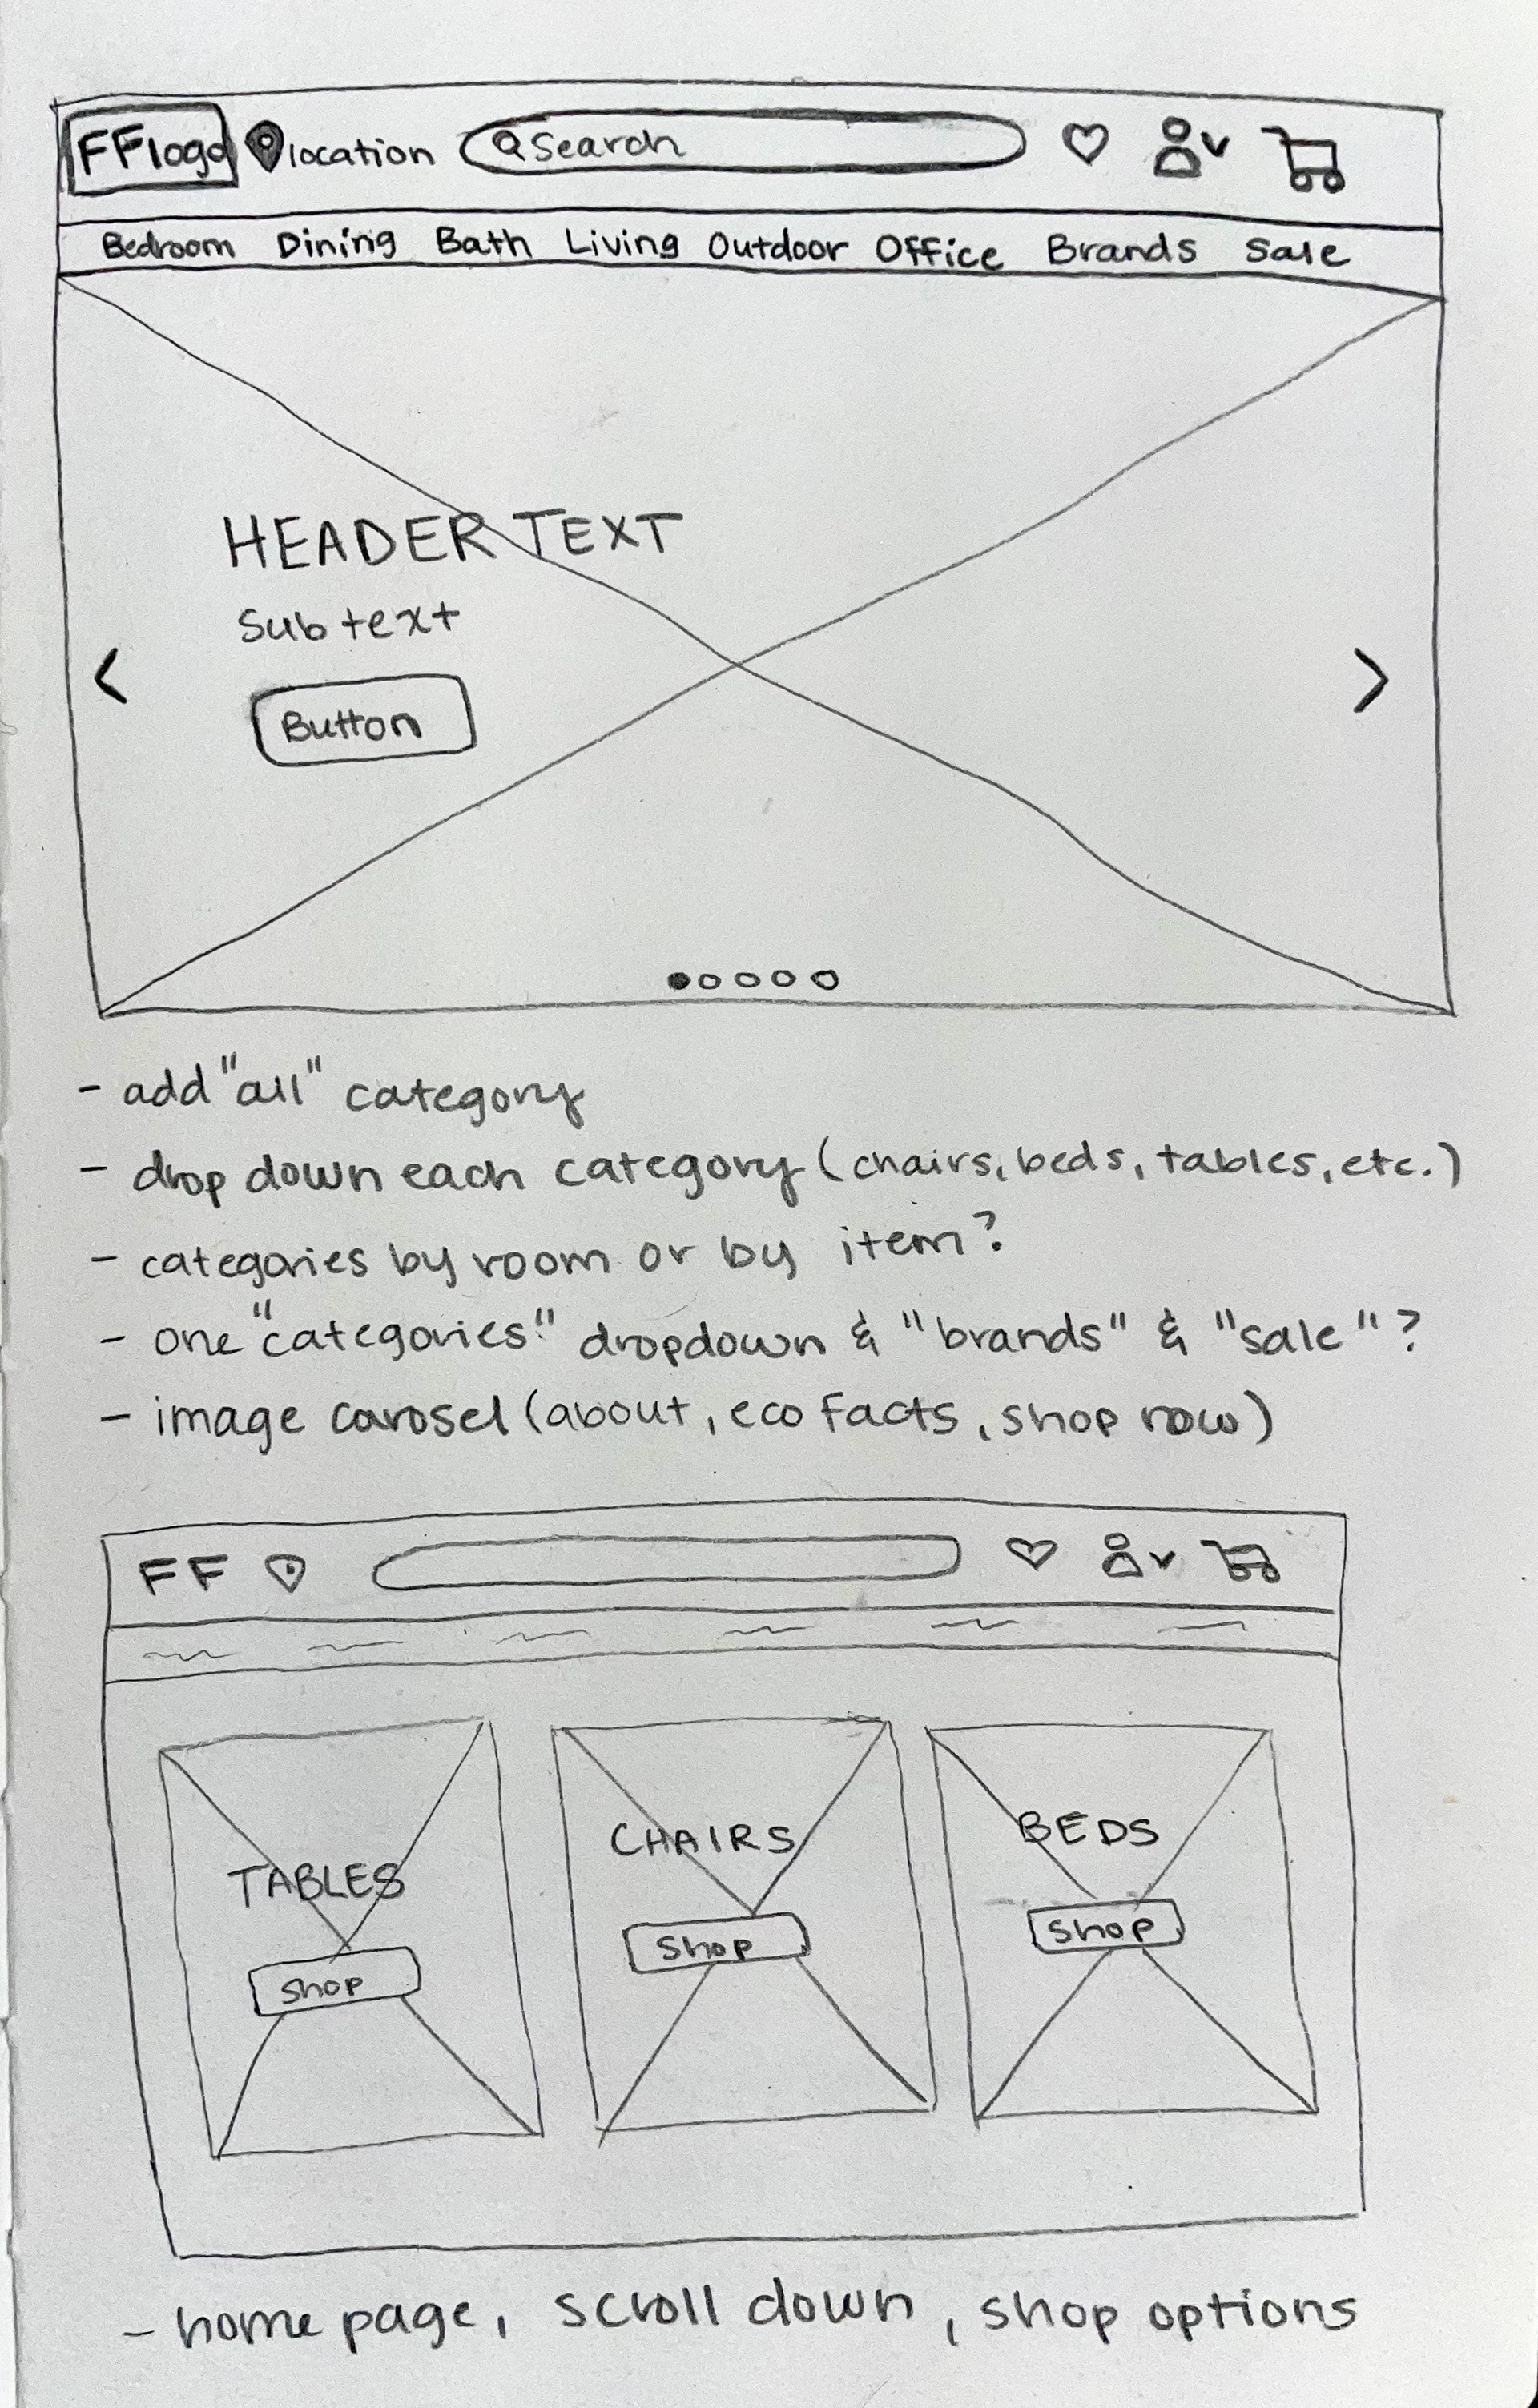 FFlogo location Search
Bedroom Dining Bath Living Outdoor Office Brands Sale
HEADER TEXT
Sub text
Button
- add "all" category
- drop down each category (chairs, beds, tables, etc.)
- categories by room or by item?
- one "categories" dropdown & "brands" & "sale"?
- image carosel (about, eco facts, shop now)
FF
TABLES
Shop
CHAIRS
Shop
BEDS
Shop
- home page, scroll down, shop options